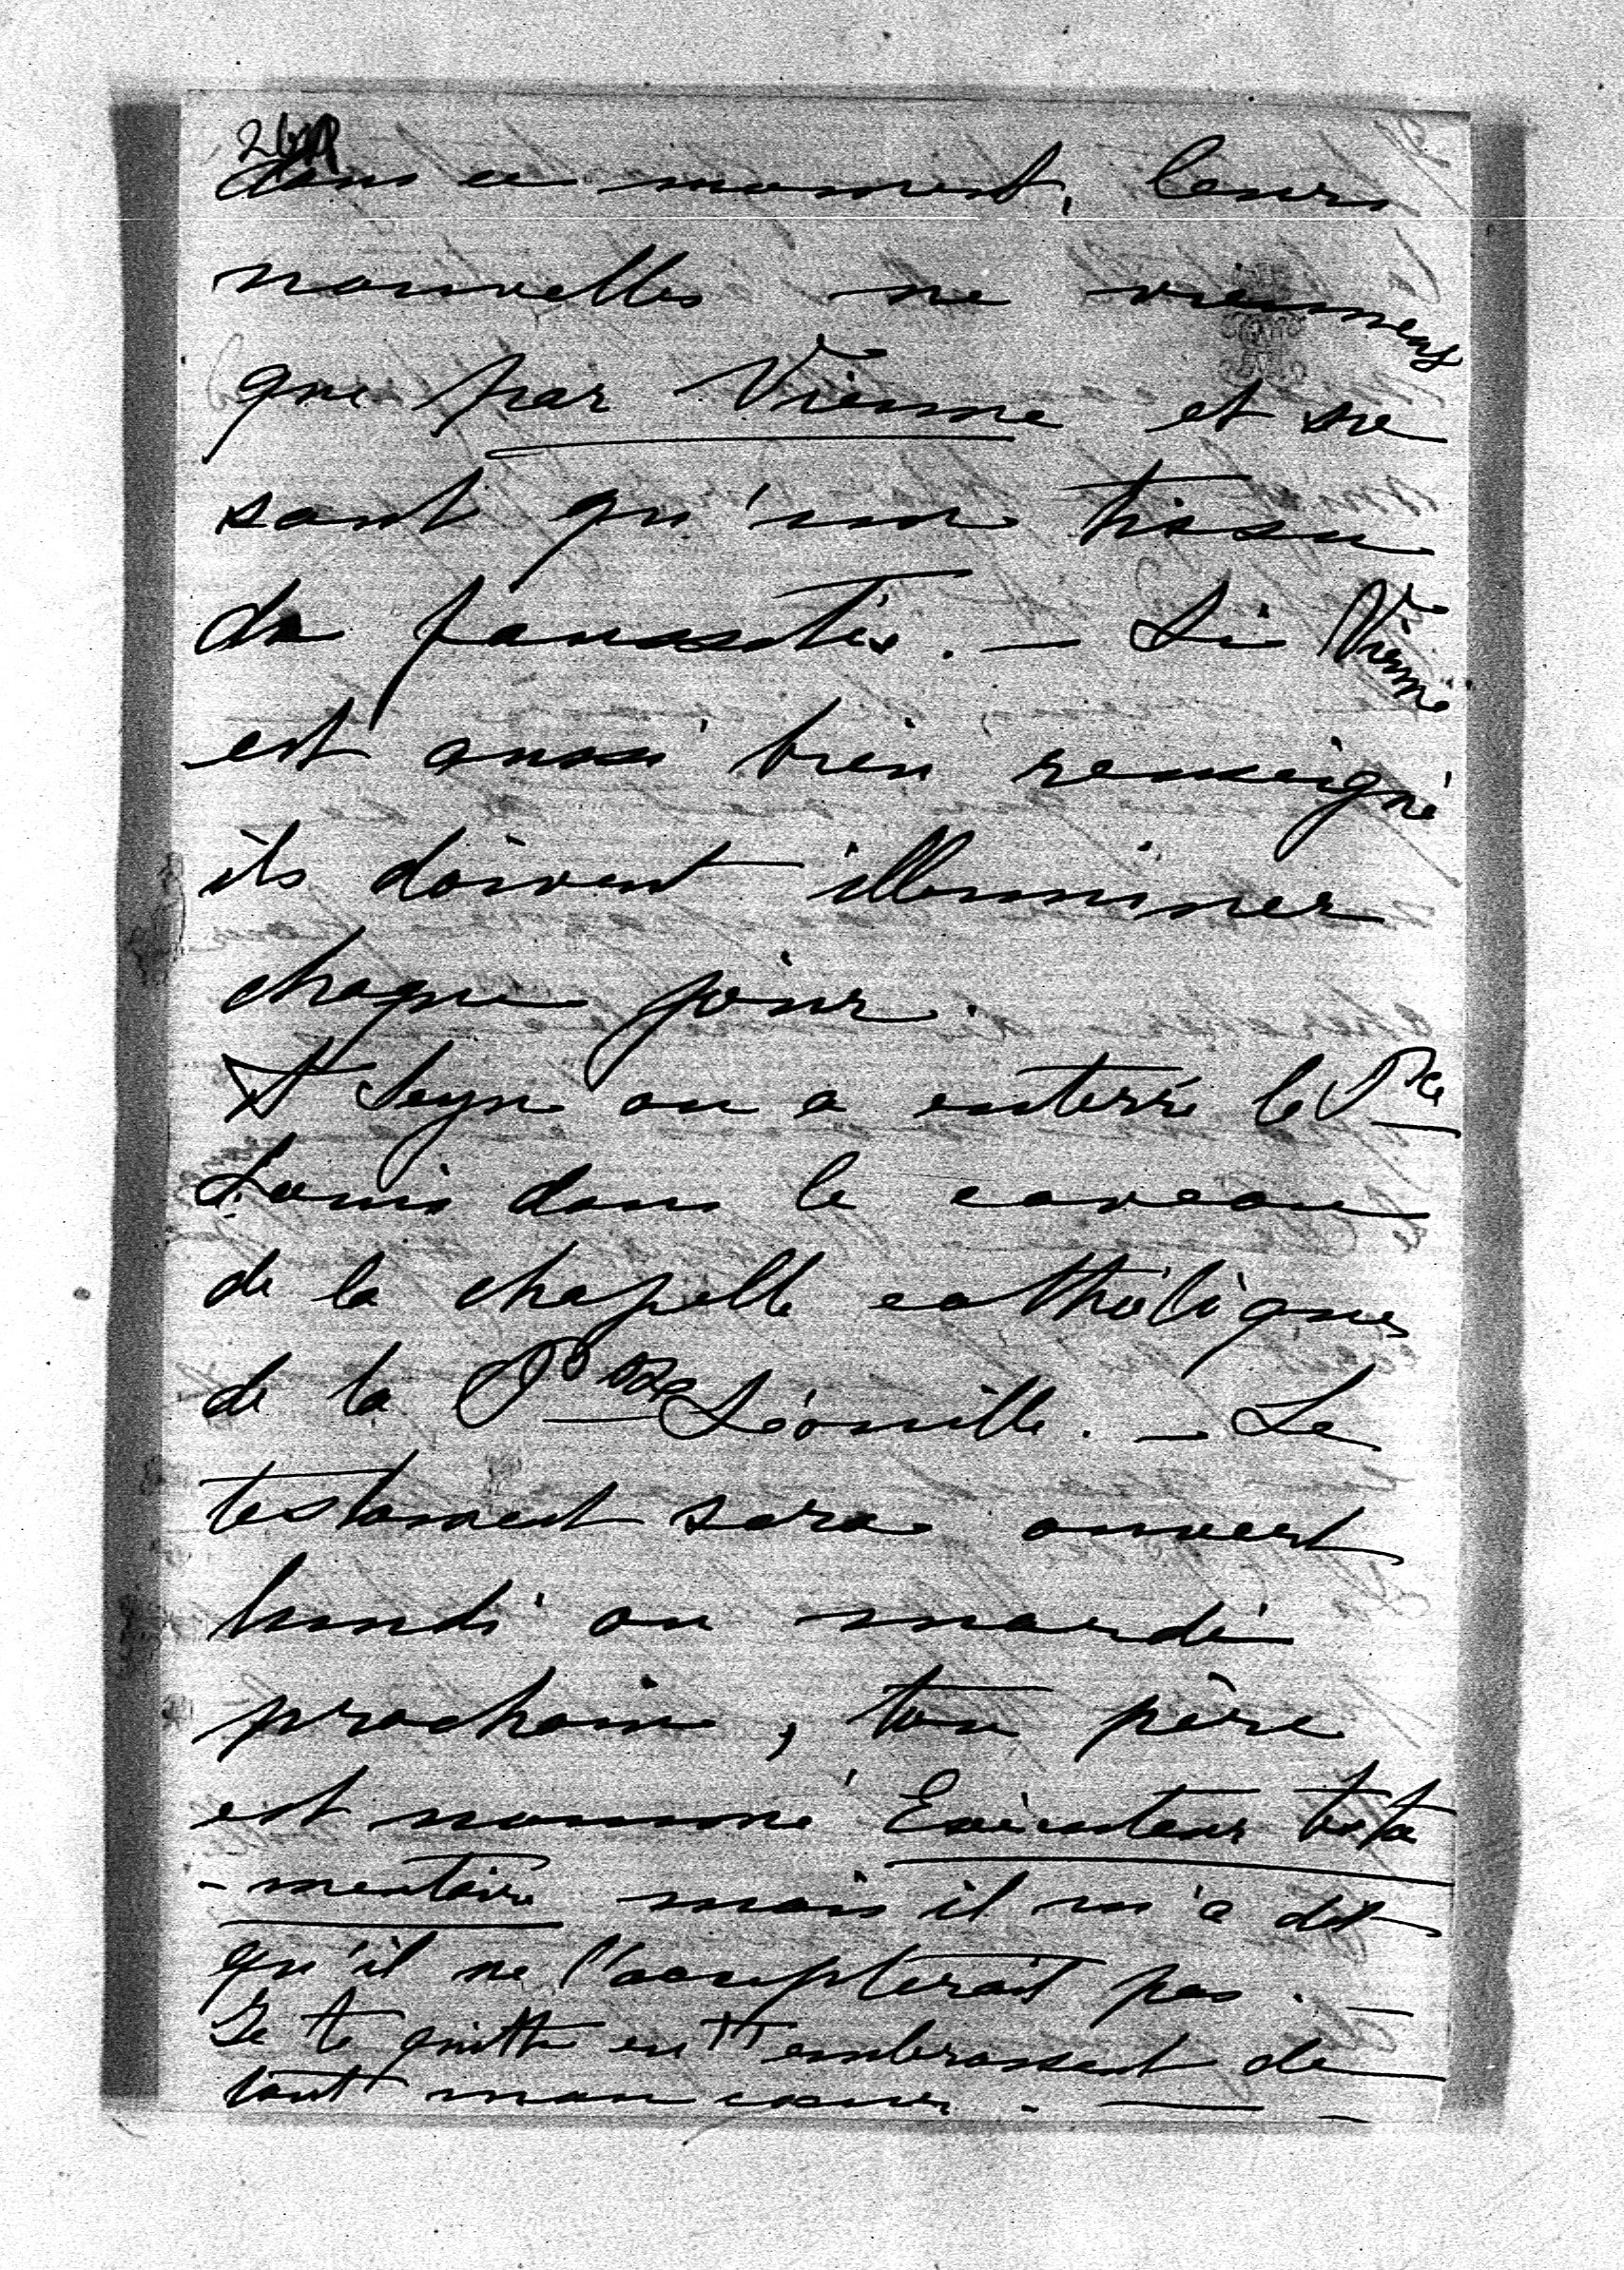 dans ce moment, leurs
nouvelles ne viennent
que par Vienne et ne
sont qu'un tissu
de faussetés. — Si Vienne
est aussi bien renseigné
ils doivent illuminer
chaque jour.
on a enterré le Pce
Louis dans le caveau
de la chapelle catholique
de la Léonille. — Le
testament sera ouvert
lundi ou mardi
prochain, ton père
est nommé Exécuteur testa
- mentaire mais il m'a dit
qu'il ne l'accepterait pas. —
Je te quitte en t'embrassant de
tout mon coeur. —